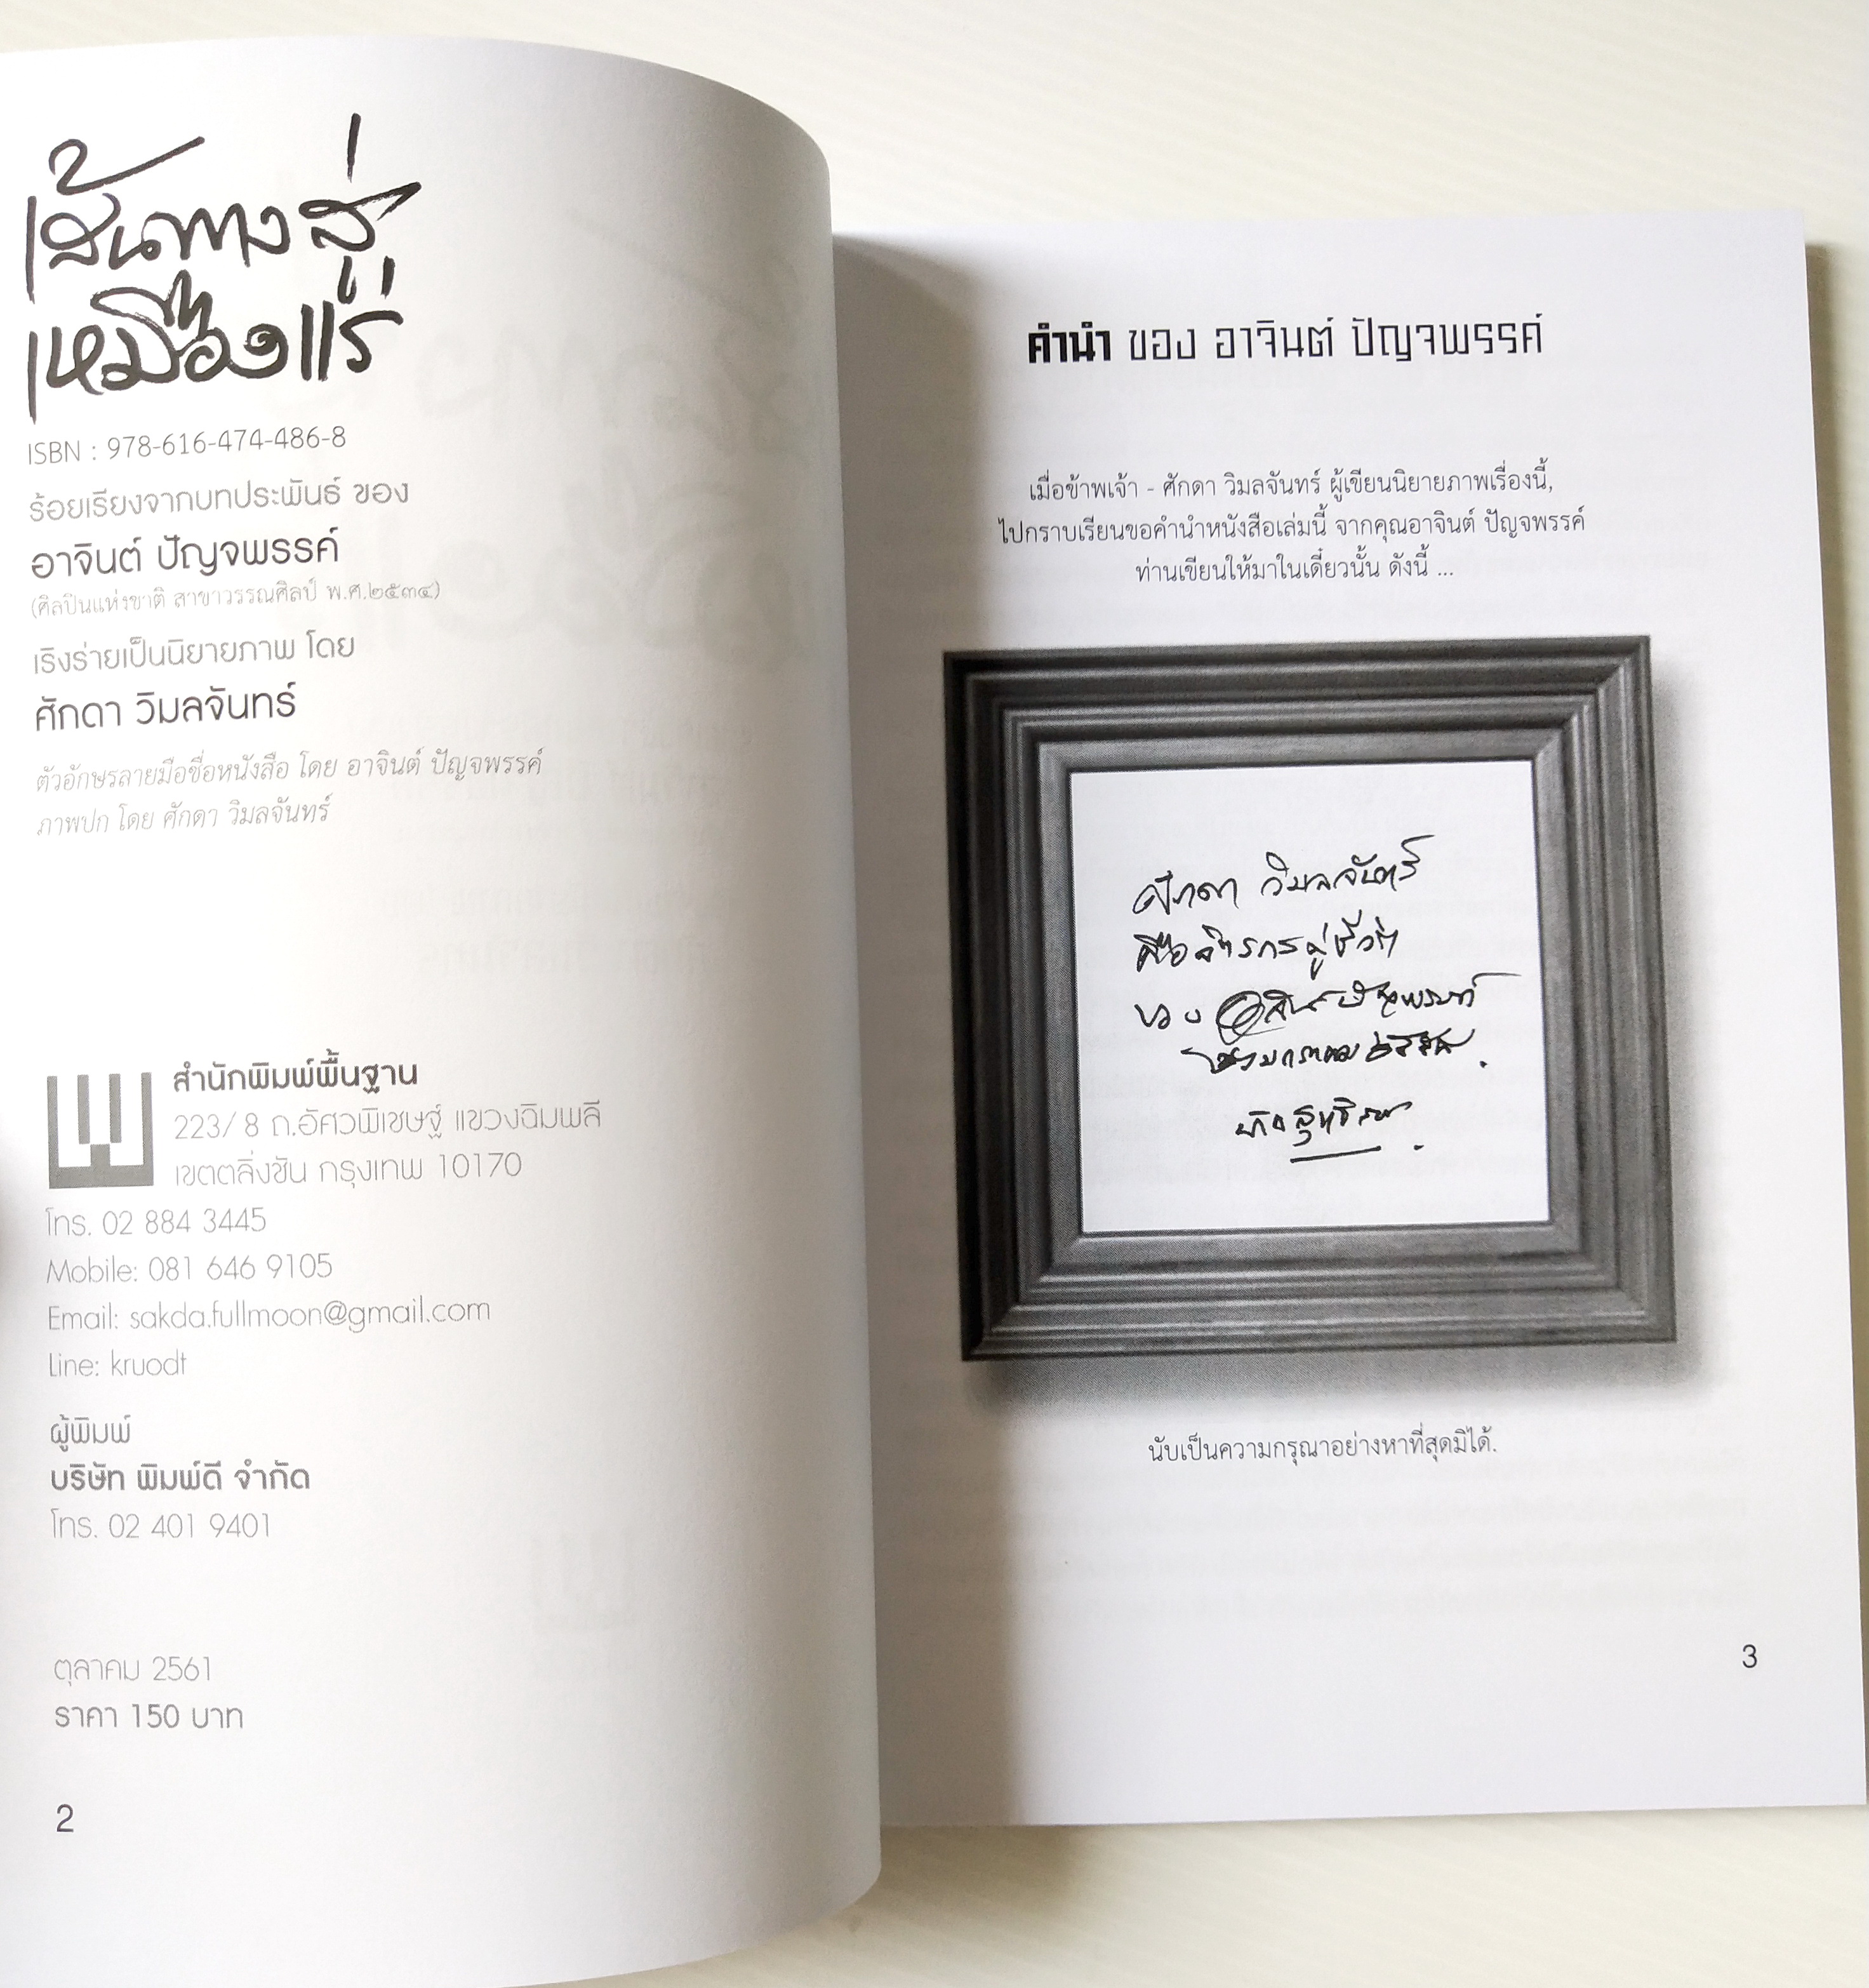 เส้นทางสู่
เหมืองแร่
ISBN : 978-616-474-486-8
ร้อยเรียงจากบทประพันธ์ ของ
อาจินต์ ปัญจพรรค์
(ศิลปินแห่งชาติ สาขาวรรณศิลป์ พ.ศ.๒๕๓๔)
เริงร่ายเป็นนิยายภาพ โดย
ศักดา วิมลจันทร์
ตัวอักษรลายมือชื่อหนังสือ โดย อาจินต์ ปัญจพรรค์
ภาพปก โดย ศักดา วิมลจันทร์
สำนักพิมพ์พื้นฐาน
223/ 8 ถ.อัศวพิเชษฐ์ แขวงฉิมพลี
เขตตลิ่งชัน กรุงเทพ 10170
โทร. 02 884 3445
Mobile: 081 646 9105
Email: sakda.fullmoon@gmail.com
Line: kruodt
ผู้พิมพ์
บริษัท พิมพ์ดี จำกัด
โทร. 02 401 9401
ตุลาคม 2561
ราคา 150 บาท
2
คำนำ ของ อาจินต์ ปัญจพรรค์
เมื่อข้าพเจ้า - ศักดา วิมลจันทร์ ผู้เขียนนิยายภาพเรื่องนี้,
ไปกราบเรียนขอคำนำหนังสือเล่มนี้ จากคุณอาจินต์ ปัญจพรรค์
ท่านเขียนให้มาในเดี๋ยวนั้น ดังนี้ ...
ศักดา วิมลจันทร์
คือจิตรกรคู่ชีวิต
ของ อาจินต์ ปัญจพรรค์
นับเป็นความกรุณาอย่างหาที่สุดมิได้.
3